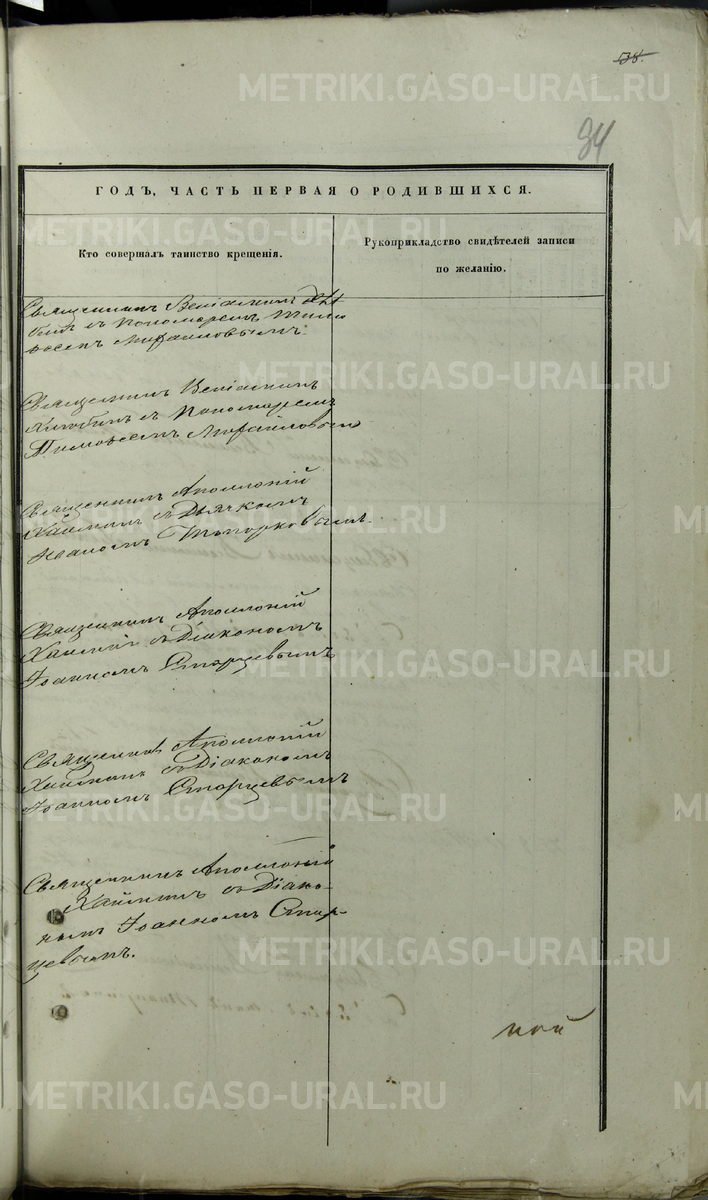 38.
34
ГОДЪ, ЧАСТЬ ПЕРВАЯ О РОДИВШИХСЯ.
Кто совершалъ таинство крещенія.
Рукоприкладство свидѣтелей записи
по желанію.
Священникъ Веніаминъ
съ Пономаремъ Тимо
ѳеемъ Михайловымъ.
Священникъ Веніаминъ
съ Пономаремъ
Тимоѳеемъ Михайловымъ
Священникъ Аполлоній
съ Дьячкомъ
Иваномъ Топорковымъ.
Священникъ Аполлоній
съ Діакономъ
Іоанномъ Старцевымъ
Священникъ Аполлоній
съ Діакономъ
Іоанномъ Старцевымъ
Священникъ Аполлоній
съ Діако-
номъ Іоанномъ Стар-
цевымъ.
METRIKI.GASO-URAL.RU
METRIKI.GASO-URAL.RU
METRIKI.GASO-URAL.RU
METRIKI.GASO-URAL.RU
METRIKI.GASO-URAL.RU
METRIKI.GASO-URAL.RU
METRIKI.GASO-URAL.RU
METRIKI.GASO-URAL.RU